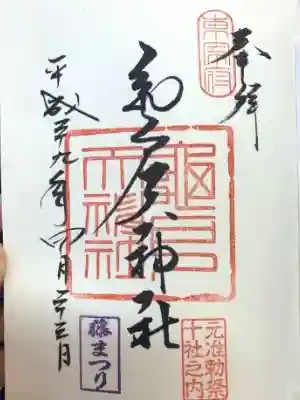 東宰府
奉拝
亀戸天神社
龜戸
天神社
平成二十九年四月二十三日
元准勅祭
十社之内
藤まつり